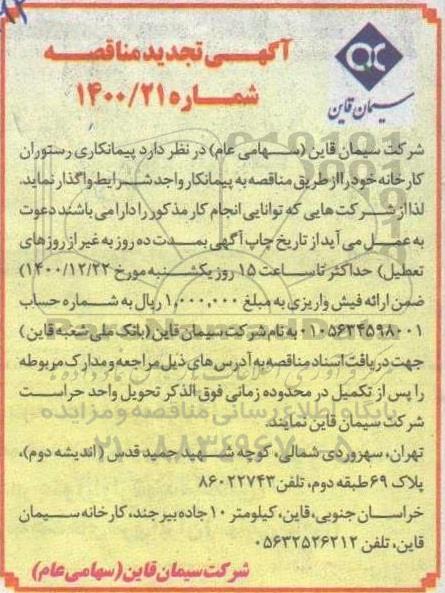 آگهی تجدید مناقصه
شماره ۱۴۰۰/۲۱
سیمان قاین
شرکت سیمان قاین (سهامی عام) در نظر دارد پیمانکاری رستوران
کارخانه خود را از طریق مناقصه به پیمانکار واجد شرایط واگذار نماید.
لذا از شرکت هایی که توانایی انجام کار مذکور را دارا می باشند دعوت
به عمل می آید از تاریخ چاپ آگهی بمدت ده روز به غیر از روزهای
تعطیل) حداکثر تا ساعت ۱۵ روز یکشنبه مورخ ۱۴۰۰/۱۲/۲۲)
ضمن ارائه فیش واریزی به مبلغ ۱,۰۰۰,۰۰۰ ریال به شماره حساب
۰۱۰۵۶۳۴۵۹۸۰۰۱ به نام شرکت سیمان قاین (بانک ملی شعبه قاین)
جهت دریافت اسناد مناقصه به آدرس های ذیل مراجعه و مدارک مربوطه
را پس از تکمیل در محدوده زمانی فوق الذکر تحویل واحد حراست
شرکت سیمان قاین نمایند.
تهران، سهروردی شمالی، کوچه شهید حمید قدس (اندیشه دوم)،
پلاک ۶۹ طبقه دوم، تلفن ۸۶۰۲۲۷۴۳
خراسان جنوبی، قاین، کیلومتر ۱۰ جاده بیرجند، کارخانه سیمان
قاین، تلفن ۰۵۶۳۲۵۲۶۲۱۲
شرکت سیمان قاین (سهامی عام)
پایگاه اطلاع رسانی مناقصه و مزایده
۰۲۱-۸۸۳۴۹۶۷۰-۵